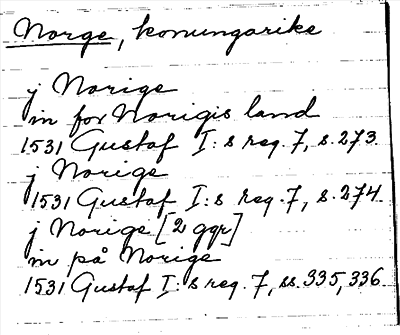 Norge, konungarike
j Norige
in for Norigis land
1531 Gustaf I:s reg. 7, s. 273.
j Norige
1531 Gustaf I:s reg. 7, s. 274.
j Norige [2 ggr]
in på Norige
1531 Gustaf I:s reg. 7, ss. 335, 336.